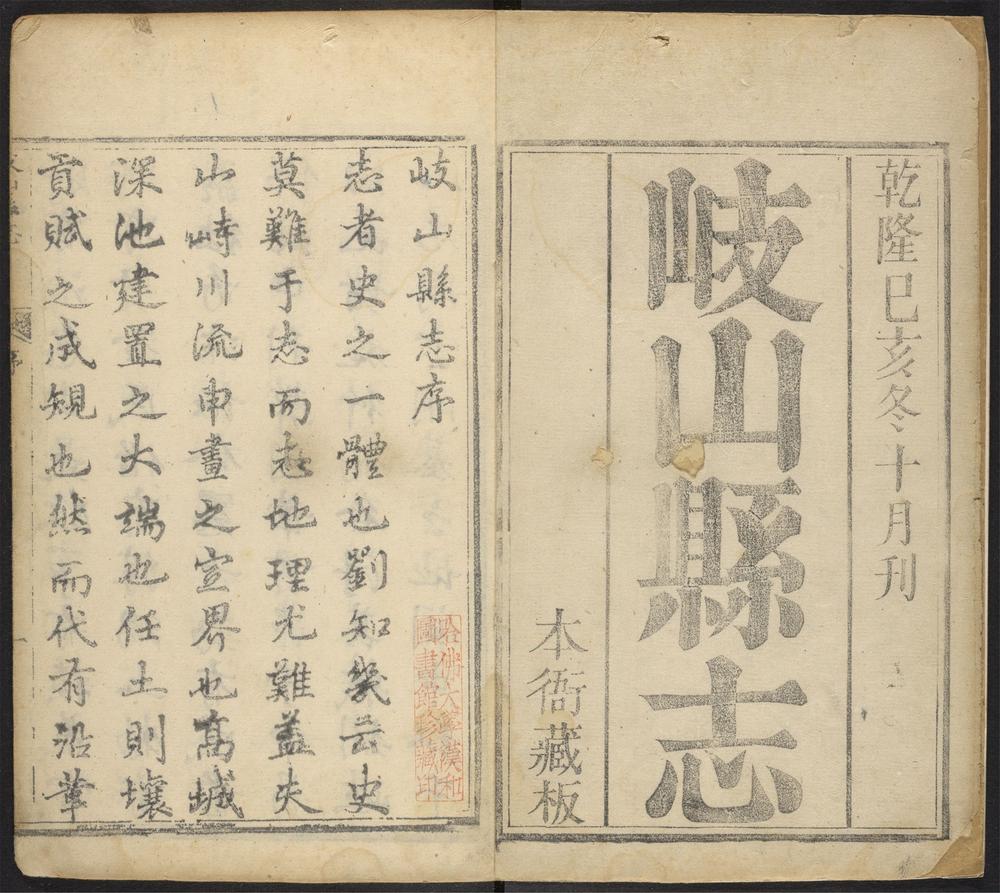 乾隆己亥冬十月刊
岐山縣志
本衙藏板
岐山縣志序
志者史之一體也劉知幾云史
莫難于志而志地理尤難蓋夫
山峙川流申畫之室界也髙城
深池建置之大端也任土則壤
貢賦之成規也然而代有沿革
哈佛大學漢和
圖書館珍藏印